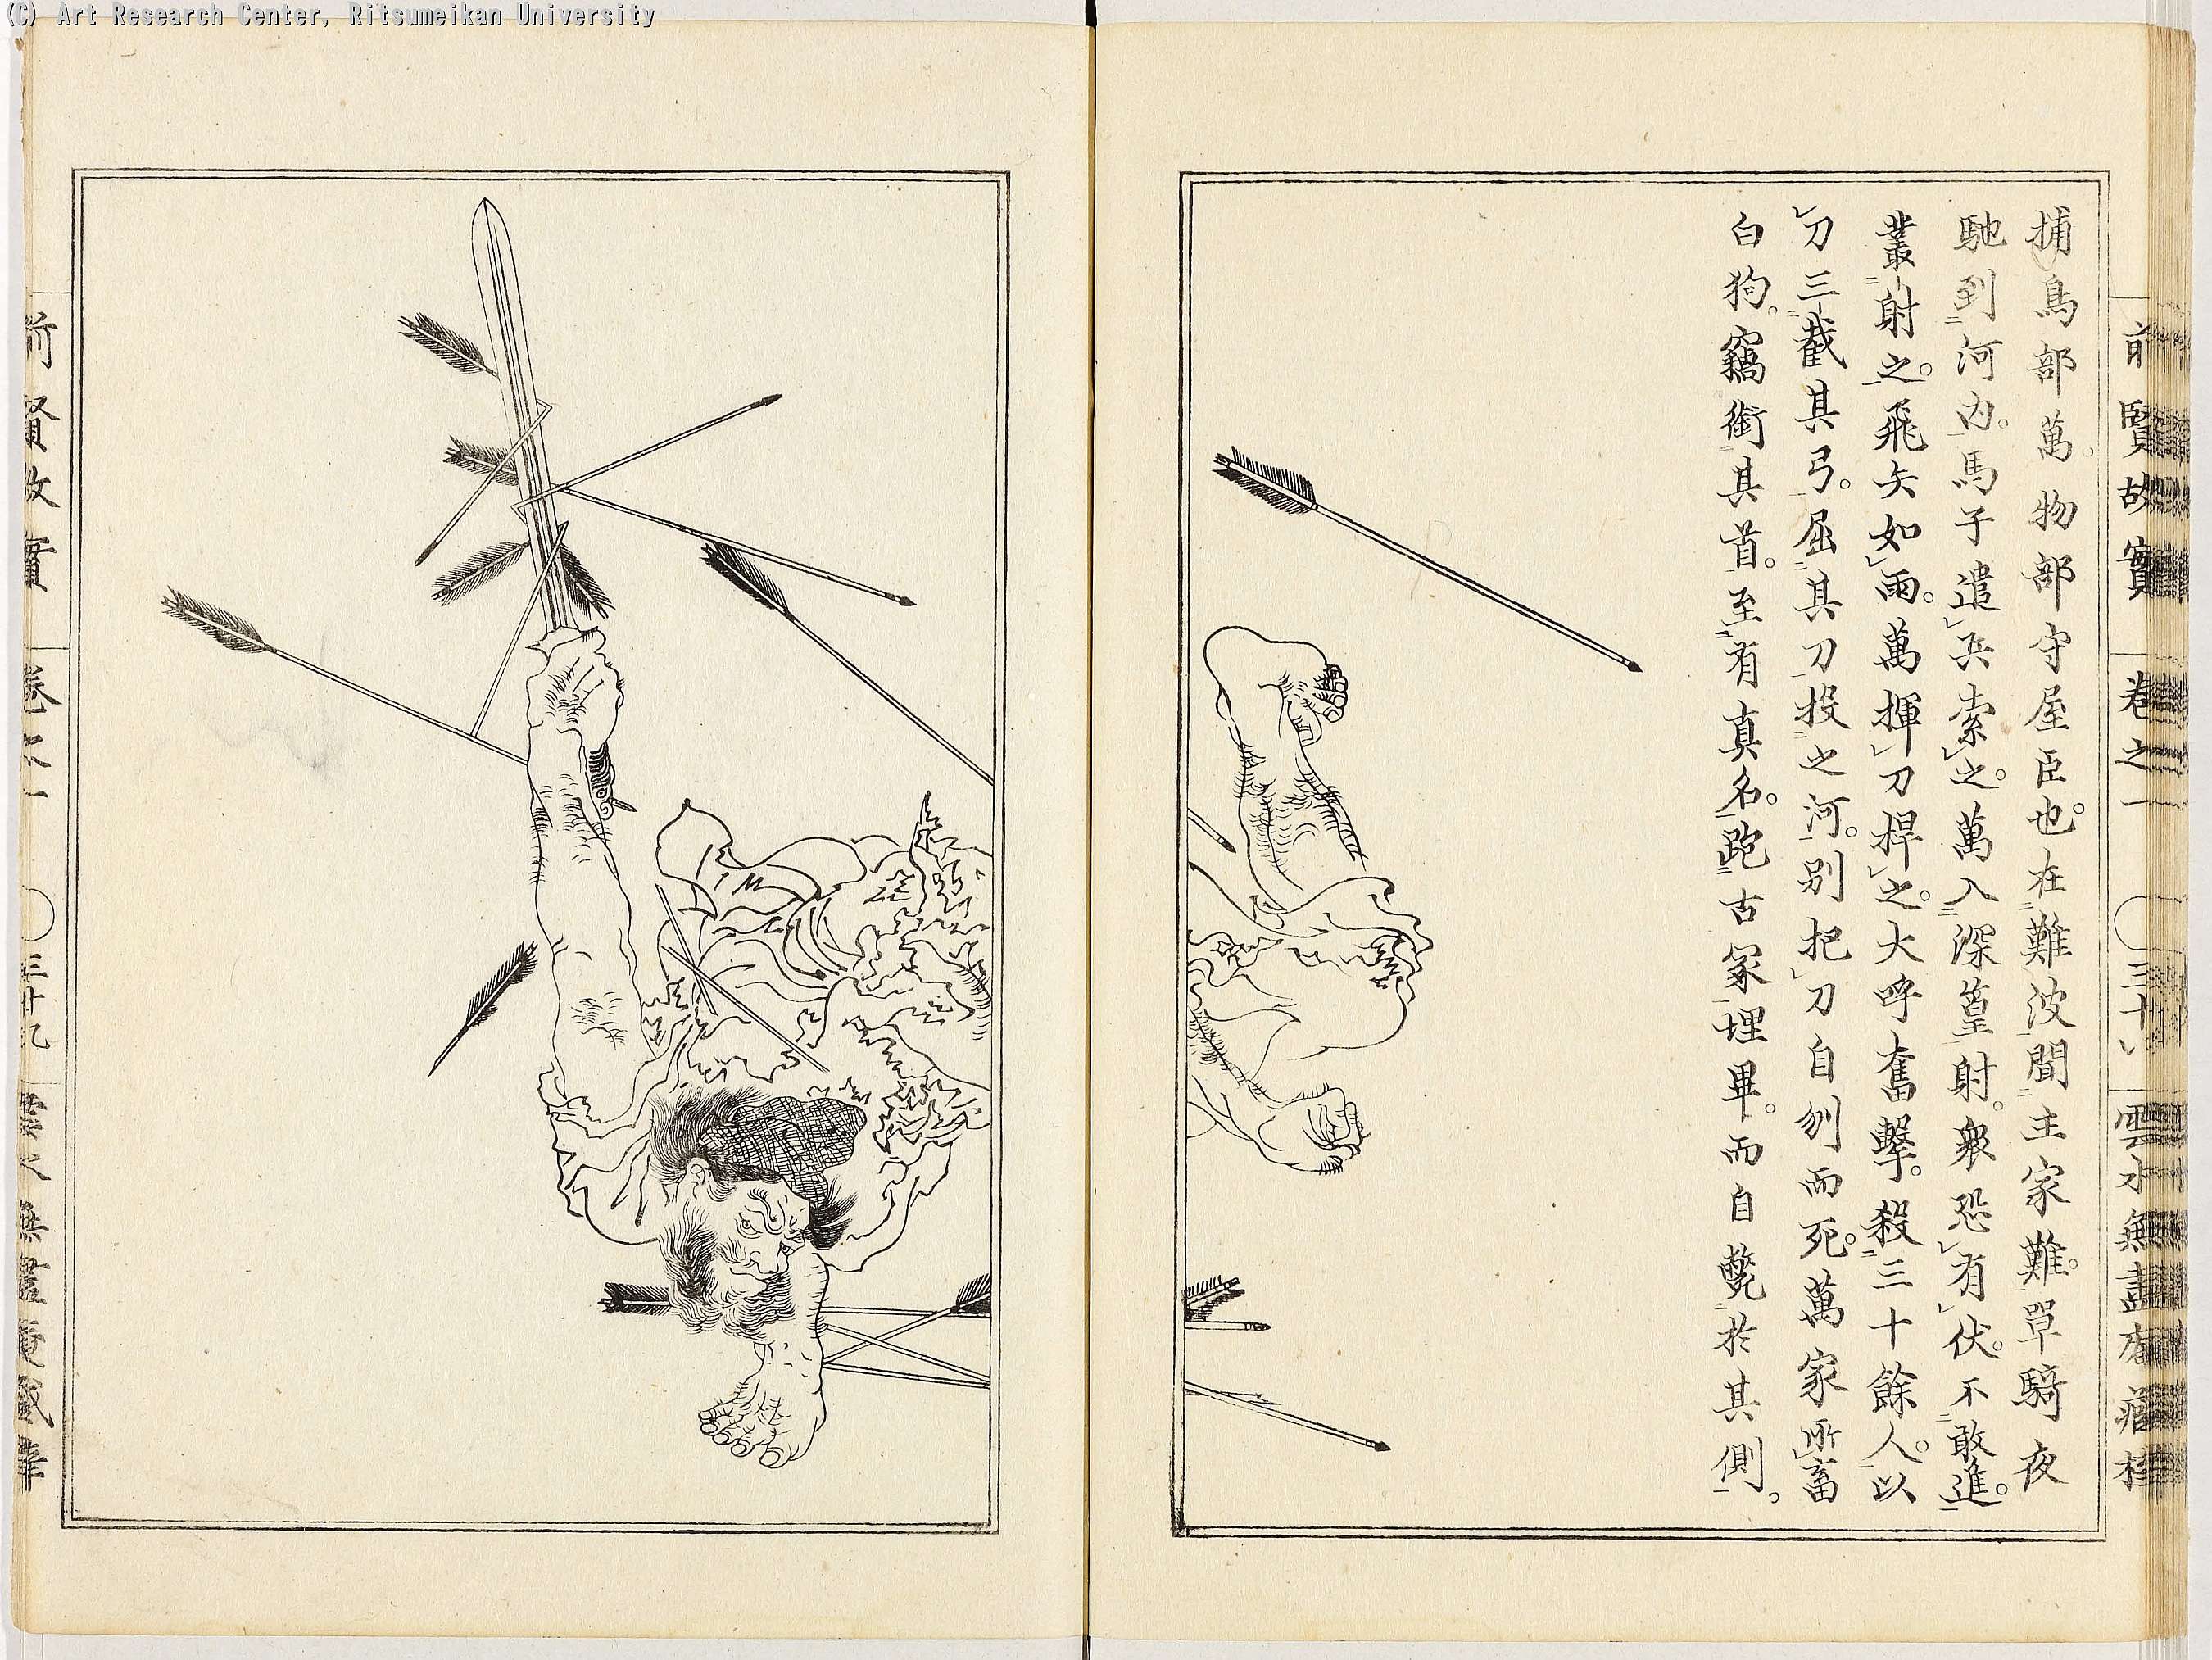 (C) Art Research Center, Ritsumeikan University
前賢故實 卷之一 三十八 雲水無盡庵
捕鳥部萬。物部守屋臣也。在難波聞主家難。單騎夜
馳到河内。馬子遣兵索之。萬入深篁射。衆恐有伏。不敢進。
叢射之。飛矢如雨。萬揮刀捍之。大呼奮擊。殺三十餘人。以
刀三截其弓。屈其刀投之河。別把刀自刎而死。萬家所畜
白狗。竊銜其首。至有真名。跑古冢埋畢。而自斃於其側。
前賢故實 卷之一 三十九 雲水無盡庵藏